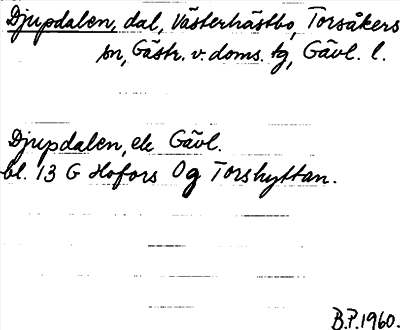 Djupdalen, dal, Västerhästbo, Torsåkers
sn, Gästr. v. doms. tg, Gävl. l.
Djupdalen, ek Gävl.
bl. 13 G Hofors Og Torshyttan.
B.P. 1960.